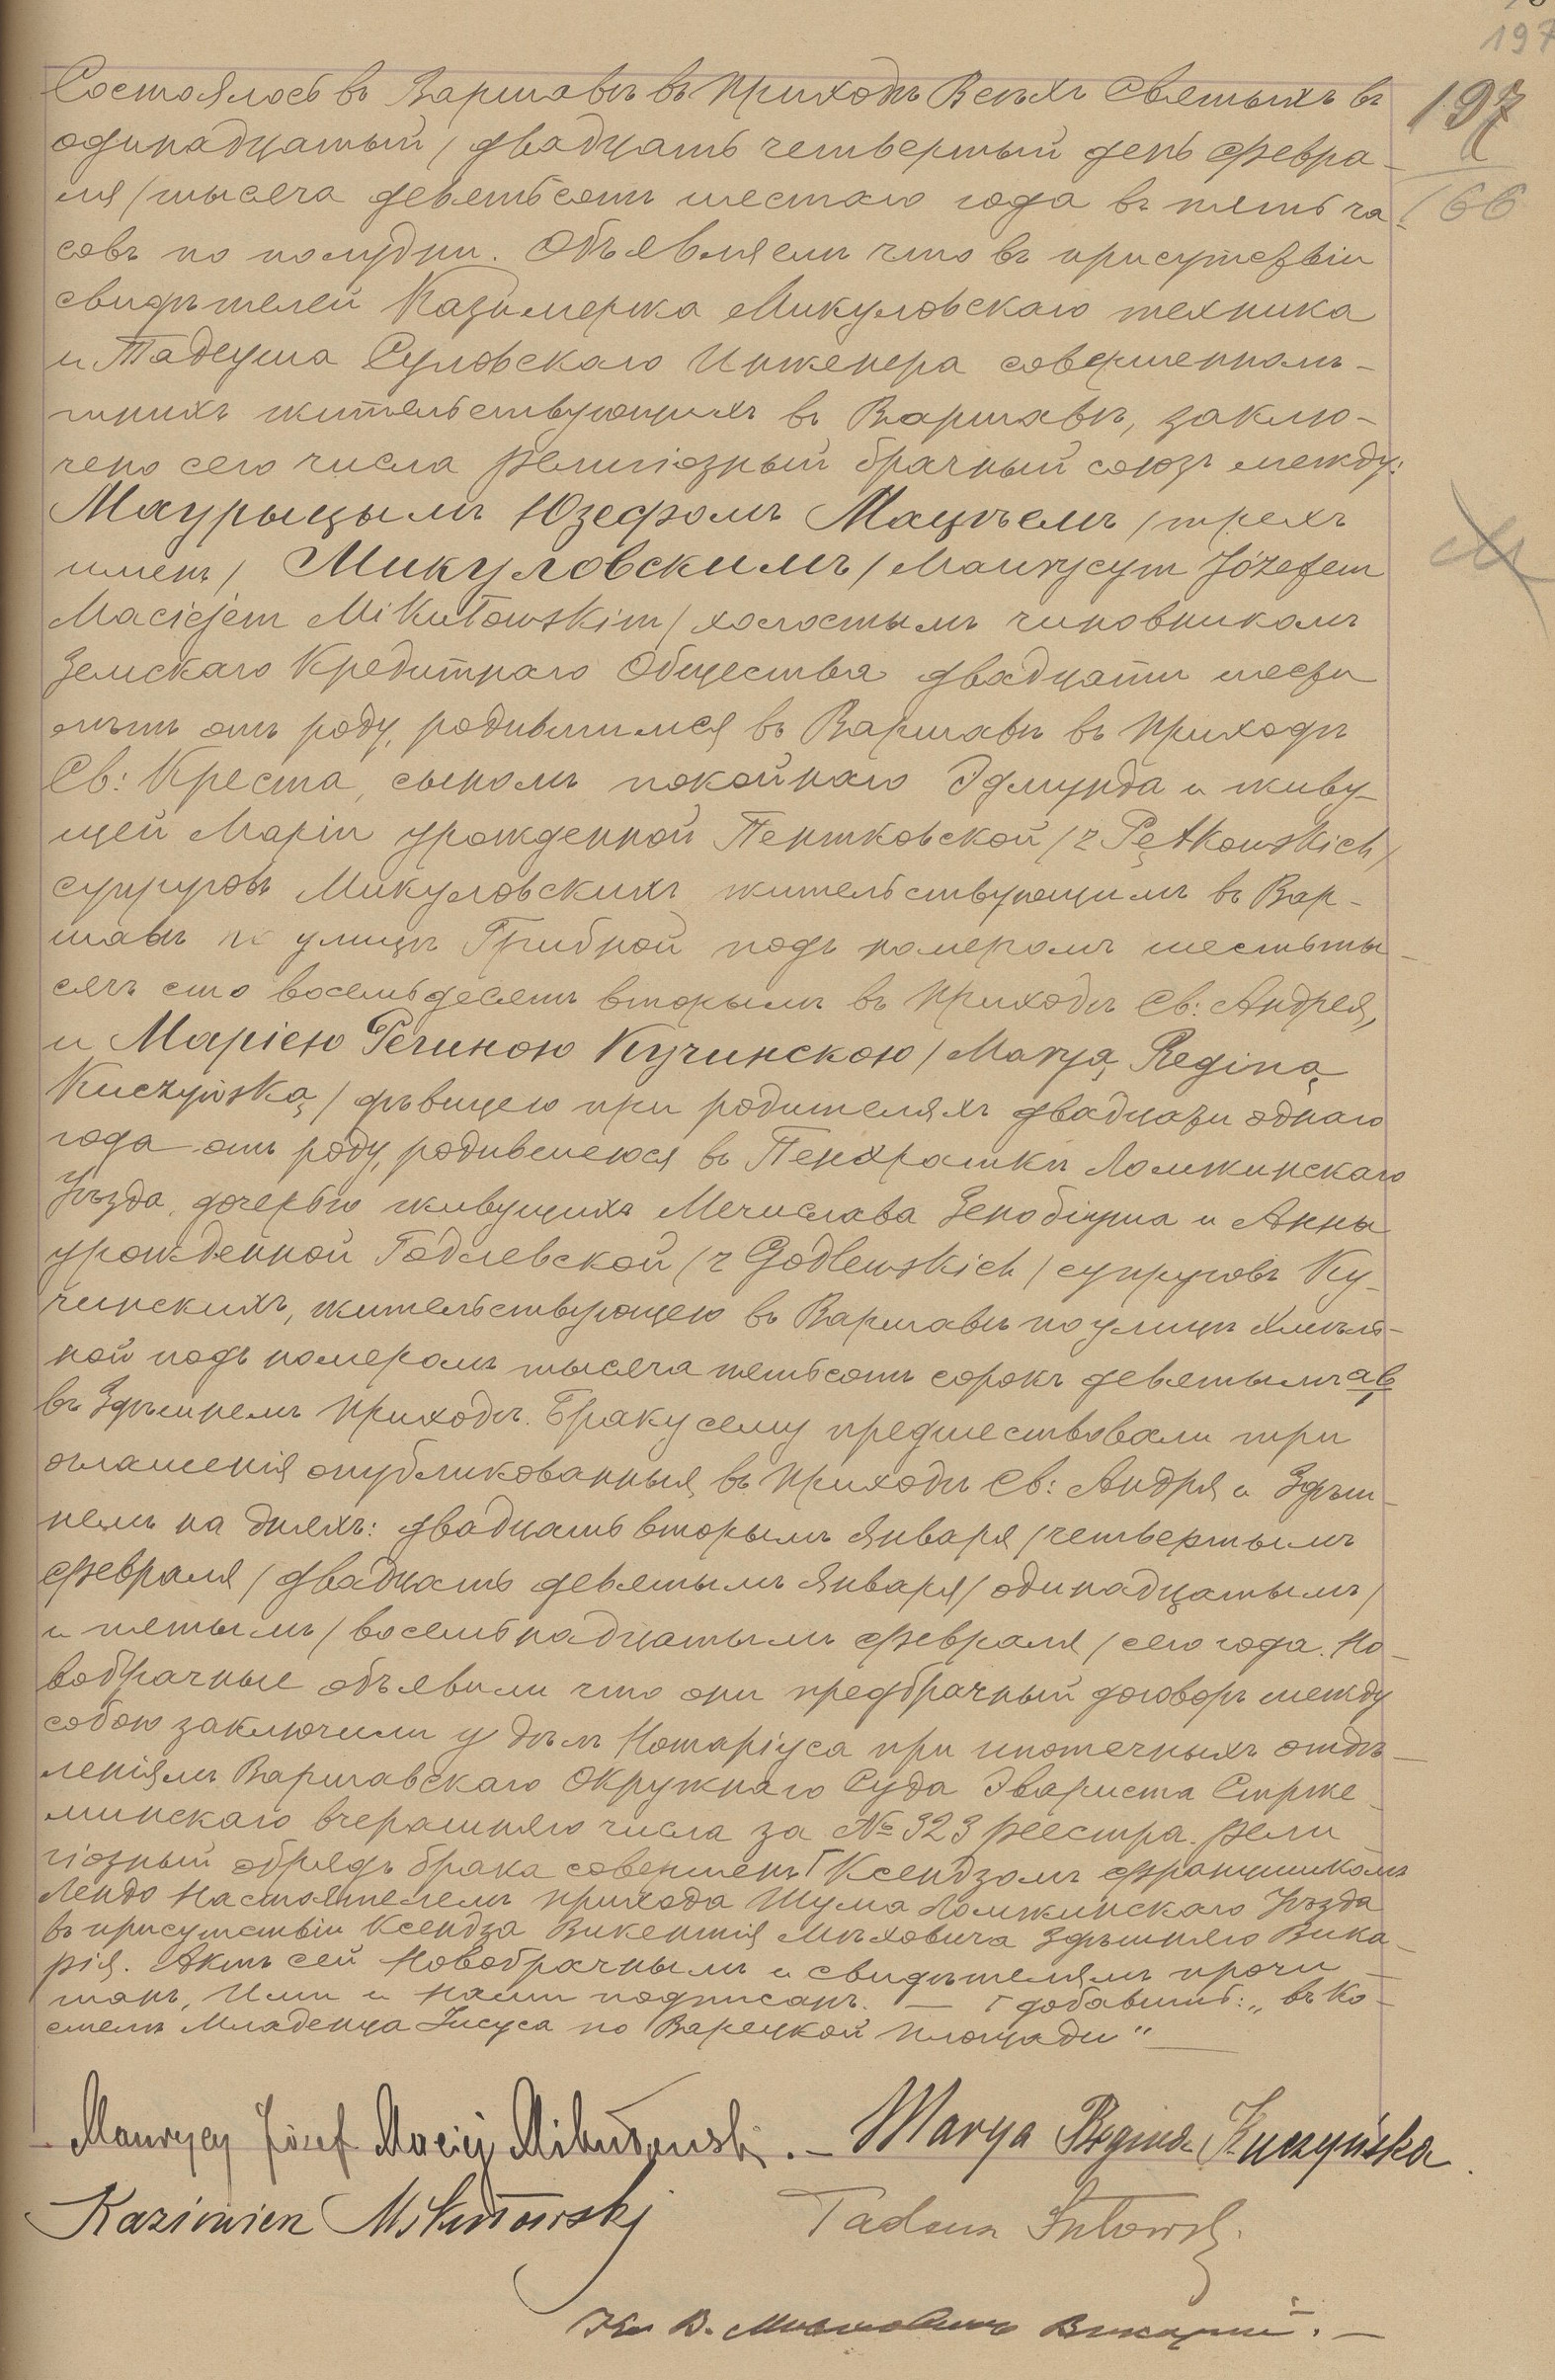 197
197
166
Состоялось въ Варшавѣ въ Приходѣ Всѣхъ Святыхъ въ
одинадцатый / двадцать четвертый день Февра-
ля / тысяча девятьсотъ шестаго года въ пять ча-
совъ по полудни. Объявляемъ что въ присутствіи
свидѣтелей Казимержа Микуловскаго техника
и Тадеуша Суловскаго Инженера совершеннолѣ-
тнихъ жительствующихъ въ Варшавѣ, заклю-
чено сего числа религіозный брачный союзъ между:
Маурыцымъ Юзефомъ Мацѣемъ / трехъ
именъ / Микуловскимъ / Maurycym Józefem
Maciejem Mikułowskim / холостымъ чиновникомъ
Земскаго Кредитнаго Общества двадцати шести
лѣтъ отъ роду, родившимся въ Варшавѣ въ Приходѣ
Св: Креста, сыномъ покойнаго Эдмунда и живу-
щей Маріи урожденной Пентковской / z Pętkowskich /
супруговъ Микуловскихъ жительствующимъ въ Вар-
шавѣ по улицѣ Грибной подъ номеромъ шестьты-
сячъ сто восемьдесятъ вторымъ въ Приходѣ Св: Андрея,
и Маріею Региною Кучинскою / Maryą Reginą
Kuczyńską / дѣвицею при родителяхъ двадцати одного
года отъ роду, родившеюся въ Ломжинскаго
Уѣзда, дочерью живущихъ Мечислава Зенобіуша и Анны
урожденной Годлевской / z Godlewskich / супруговъ Ку-
чинскихъ, жительствующею въ Варшавѣ по улицѣ Хмѣль-
ной подъ номеромъ тысяча пятьсотъ сорокъ девятымъ ав
въ Здѣшнемъ Приходѣ. Браку сему предшествовали три
оглашенія опубликованныя въ Приходѣ Св: Андрея и Здѣш-
немъ на дняхъ: двадцать вторымъ Января / четвертымъ
Февраля / двадцать девятымъ Января / одинадцатымъ /
и пятымъ / восемьнадцатымъ Февраля / сего года. Но-
вобрачные объявили что они предбрачный договоръ между
собою заключили у дѣлъ Нотаріуса при ипотечныхъ отдѣ-
леніямъ Варшавскаго Окружнаго Суда Эвариста Стрже-
минскаго вчерашняго числа за № 323 реестра. Рели-
гіозный обрядъ брака совершенъ Г Ксендзомъ Францишкомъ
Лендо Настоятелемъ прихода Шума Ломжинскаго Уѣзда
въ присутствіи Ксендза Викентія Мѣховича Здѣшняго Вика-
рія. Актъ сей Новобрачнымъ и свидѣтелямъ прочи-
танъ, Ими и Нами подписанъ. — Г добавить: „въ Ко-
стелѣ Младенца Іисуса по Варецкой площади"
Maurycy Józef Maciej Mikułowski. — Marya Regina Kuczyńska.
Kazimierz Mikułowski Tadeusz Sułowski.
Кс. В. Мѣховичъ Викарій. —